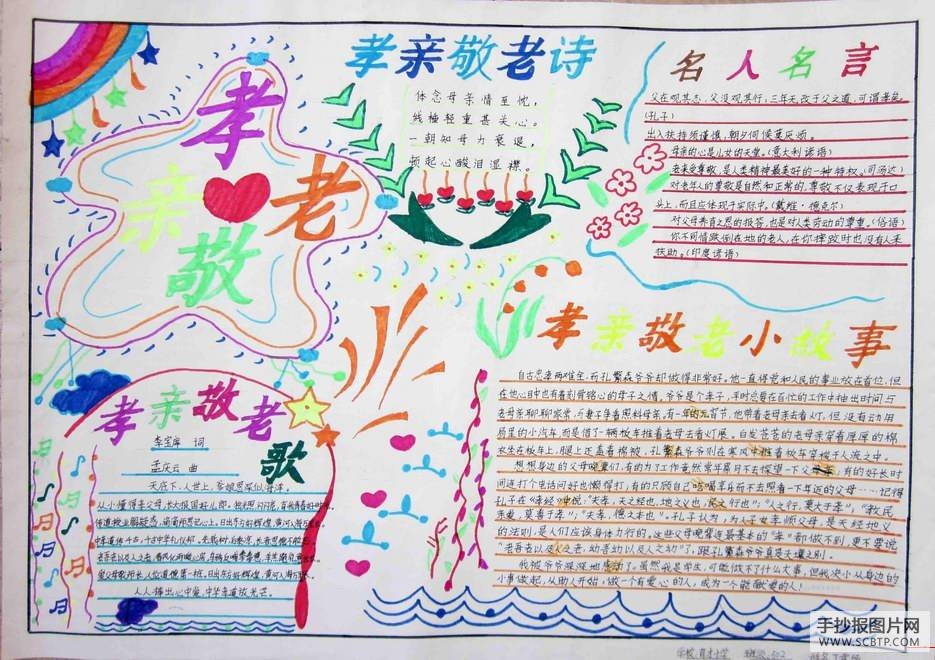 孝
亲
老
敬
孝亲敬老诗
体念母亲情至忱,
线椽轻重甚关心。
一朝知母力衰退,
顿起心酸泪湿襟。
名人名言
父在观其志,父没观其行,三年无改于父之道,可谓孝矣。
(孔子)
出入扶持须谨慎,朝夕伺候莫厌烦。
母亲的心是儿女的天堂。(意大利谚语)
老来受尊敬,是人类精神最美好的一种特权。(司汤达)
对老年人的尊敬是自然和正常的,尊敬不仅表现于口
头上,而且应体现于实际中。(戴维·德克尔)
对父母养育之恩的报答,也是对人类劳动的尊重。(俗语)
你不同情跌倒在地的老人,在你摔跤时也没有人来
扶助。(印度谚语)
孝亲敬老小故事
自古忠孝两难全,而孔繁森爷爷却做得非常好。他一直将党和人民的事业放在首位,但
在他心目中也有着刻骨铭心的母子之情。爷爷是个孝子,平时总要在百忙的工作中抽出时间与
老母亲聊聊家常,与妻子争着照料母亲。有一年的元宵节,他带着老母亲去看灯,但没有去动用
局里的小汽车,而是借了一辆板车推着老母去看灯展。白发苍苍的老母亲穿着厚厚的棉
衣坐在板车上,腿上还盖着棉被。孔繁森爷爷则在寒风中推着板车穿梭于人流之中。
想想身边的父母晚辈们,有的为了工作竟然常年累月不去探望一下父母,有的好长时
间连打个电话问好也懒得打,有的只顾自己吃喝享乐而不去照看一下年迈的父母……记得
孔子在《孝经》中说,"夫孝,天之经也,地之义也,民之行也","人之行,莫大于孝","教民
亲爱,莫善于孝","夫孝,德之本也"。孔子认为,为人子女孝顺父母,是天经地义
的法则,是人们应该身体力行的。这些父母晚辈连最基本的"孝"都做不到,更不要说
"老吾老以及人之老,幼吾幼以及人之幼"了,跟孔繁森爷爷真是天壤之别。
我被爷爷深深地感动了。虽然我是学生,可能做不了什么大事,但我决心从身边的
小事做起,从助人开始,做一个有爱心的人,成为一个能献爱的人!
孝亲敬老
歌
李宝库 词
孟庆云 曲
天底下,人世上,爹娘恩深似海洋。
人人捧出心中爱,中华孝道放光芒。
手抄报图片网
WWW.SCBTP.COM